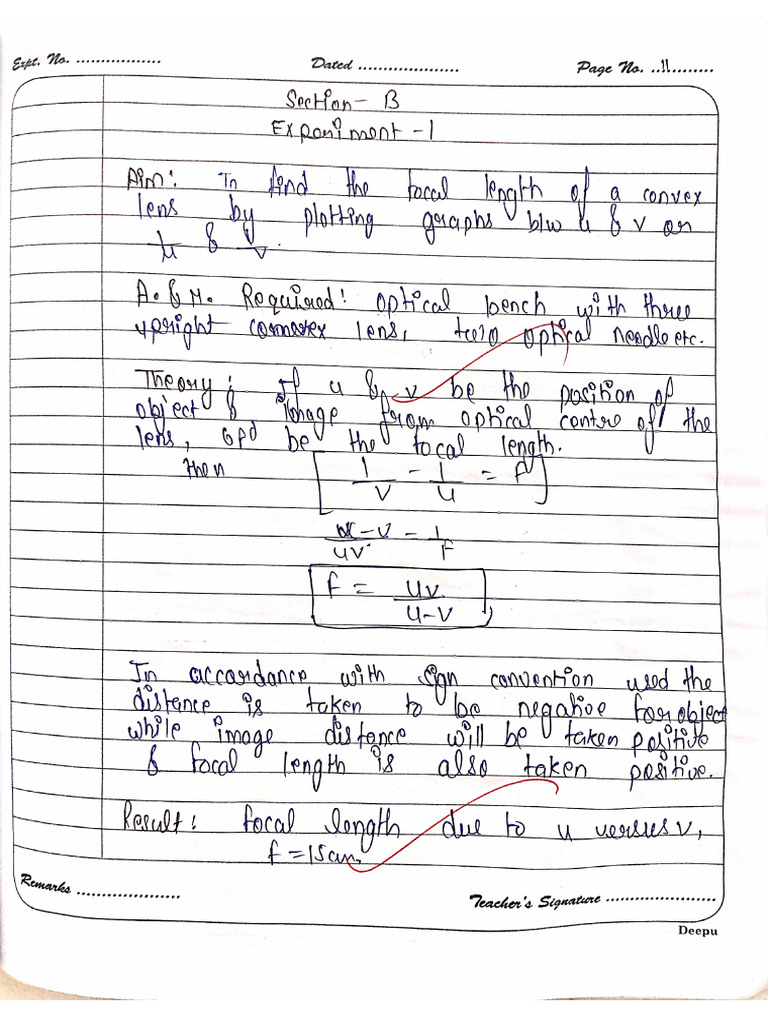 Expt. No. ................. Dated .................... Page No. ..11........
Section - B
Experiment - 1
Aim: To find the focal length of a convex
lens by plotting graphs b/w u & v or
1/u & 1/v.
A. & M. Required: optical bench with three
upright convex lens, two optical needle etc.
Theory: If u & v be the position of
object & image from optical centre of the
lens, be the focal length.
then [1/v - 1/u = f]
u-v/uv = 1/f
f = uv/u-v
In accordance with sign convention used the
distance is taken to be negative for object
while image distance will be taken positive
& focal length is also taken positive.
Result: focal length due to u versus v,
f = 15cm.
Remarks .................... Teacher's Signature .....................
Deepu